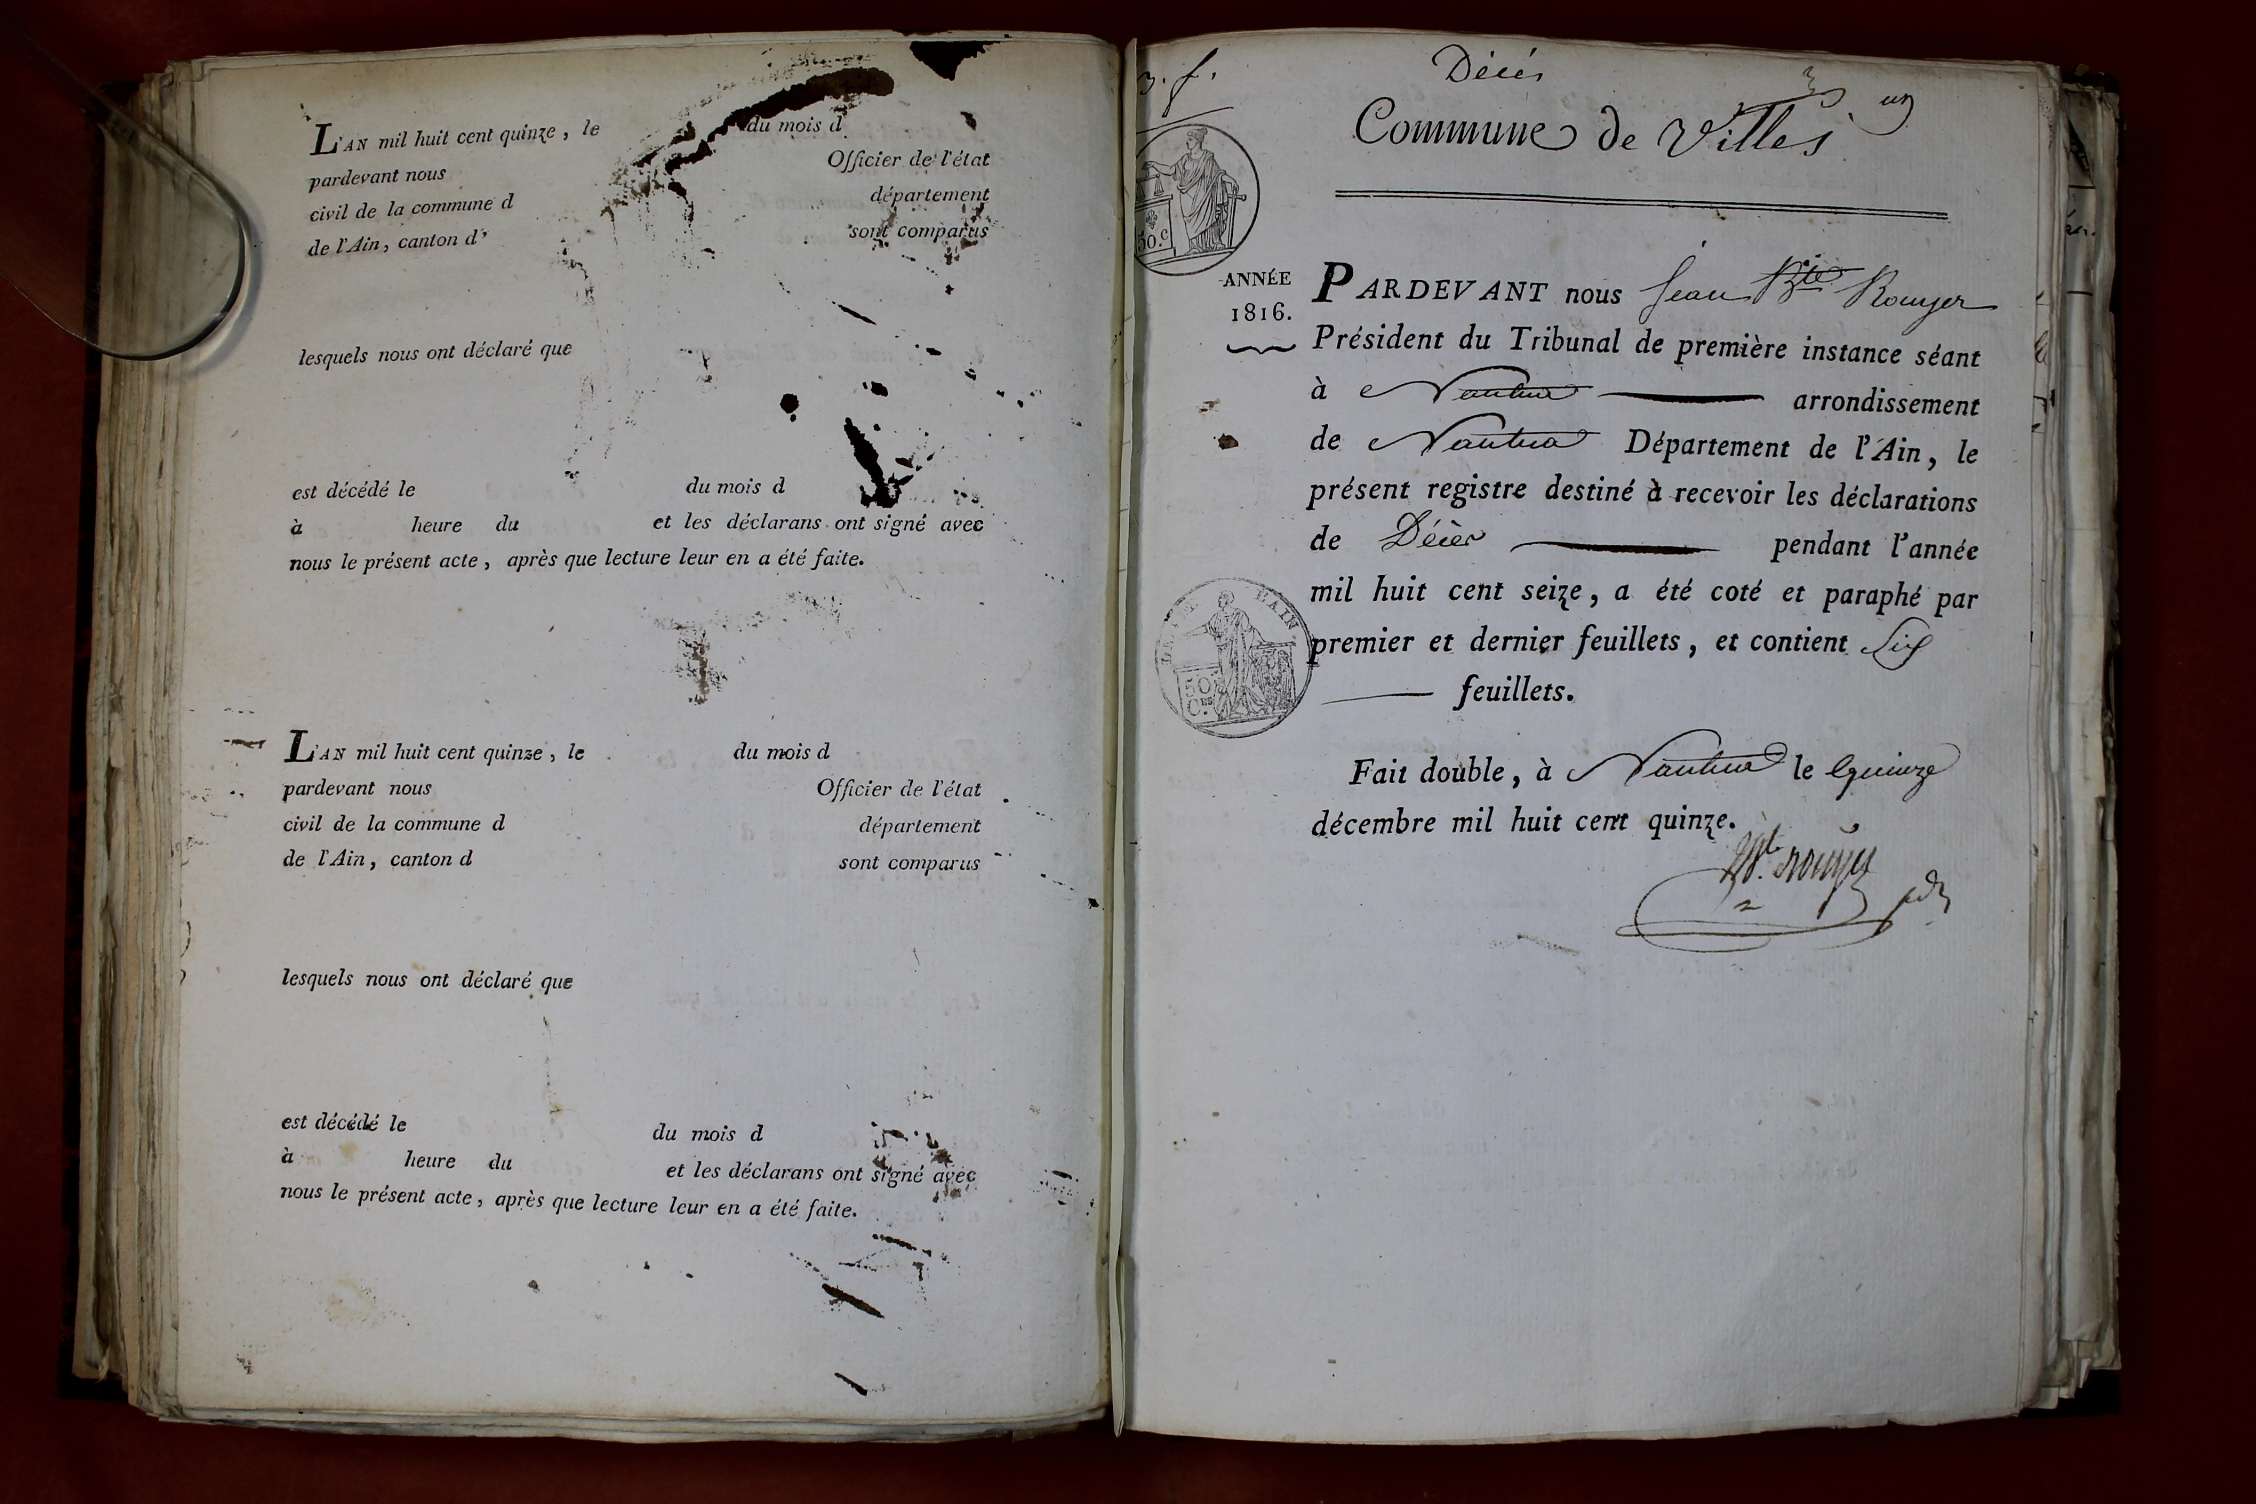 L'AN mil huit cent quinze, le du mois d
pardevant nous Officier de l'état
civil de la commune d département
de l'Ain, canton d' sont comparus
lesquels nous ont déclaré que
est décédé le du mois d
à heure du et les déclarans ont signé avec
nous le présent acte, après que lecture leur en a été faite.
L'AN mil huit cent quinze, le du mois d
pardevant nous Officier de l'état
civil de la commune d département
de l'Ain, canton d sont comparus
lesquels nous ont déclaré que
est décédé le du mois d
à heure du et les déclarans ont signé avec
nous le présent acte, après que lecture leur en a été faite.
Décés
Commune de Villes
50.c
ANNÉE
1816.
PARDEVANT nous Jean Bte Rouyer
Président du Tribunal de première instance séant
à Nantua arrondissement
de Nantua Département de l'Ain, le
présent registre destiné à recevoir les déclarations
de Décès pendant l'année
mil huit cent seize, a été coté et paraphé par
premier et dernier feuillets, et contient Six
feuillets.
50
Ces
Fait double, à Nantua le quinze
décembre mil huit cent quinze.
Bte. rouyer